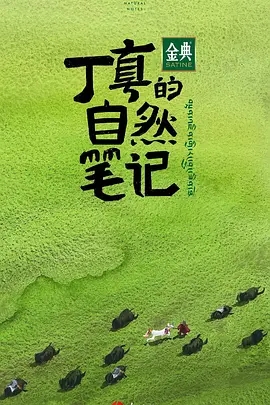 NATURAL
NOTES
丁真的
自然
笔记
金典
SATINE